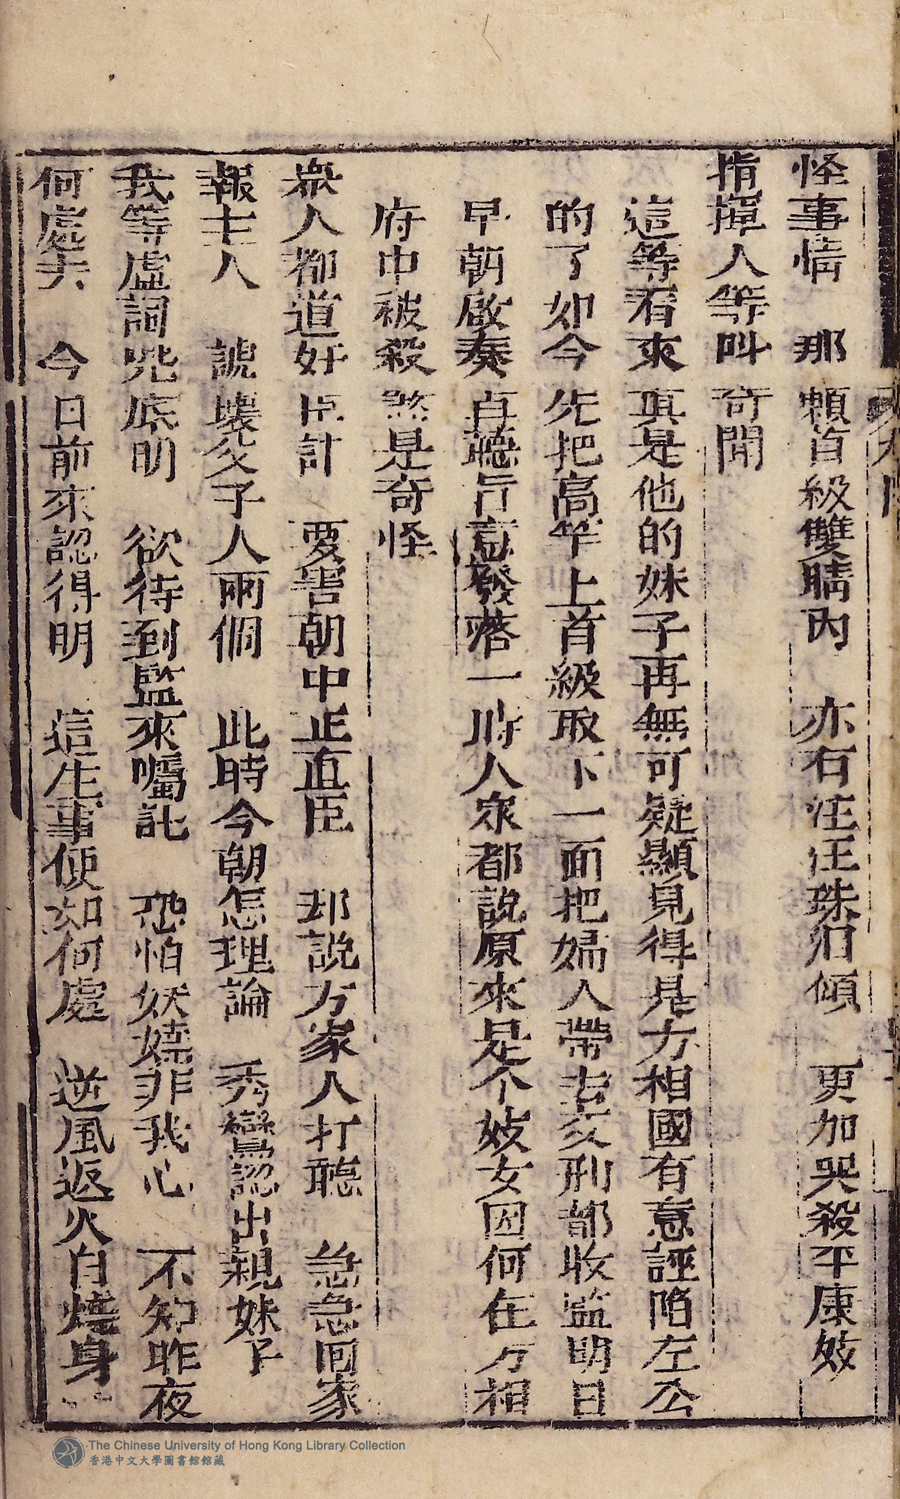 怪事情　那頼首級雙睛内　亦右注汪珠泪傾　更加哭殺平康妓
指揮人等叫奇聞
這等看來真是他的妹子再無可疑顯見得是方相國有意誣陷左公
的了如今先把高竿上首級取下一面把婦人帶去交刑部收监明日
早朝啟奏自聽旨意發落一時人衆都說原來是个妓女因何在方相
府中被殺煞是奇怪
衆人都道奸臣計　要害朝中正直臣　却説方家人打聽　急急囘家
報主人　諕壞父子人兩個　此時今朝怎理論　秀鸞認出親妹子
我等虛詞兠底明　欲待到監來囑託　恐怕妖嬈非我心　不知昨夜
何處去　今日前來認得明　這生事便如何處　逆風返火自燒身
The Chinese University of Hong Kong Library Collection
香港中文大學圖書館館藏